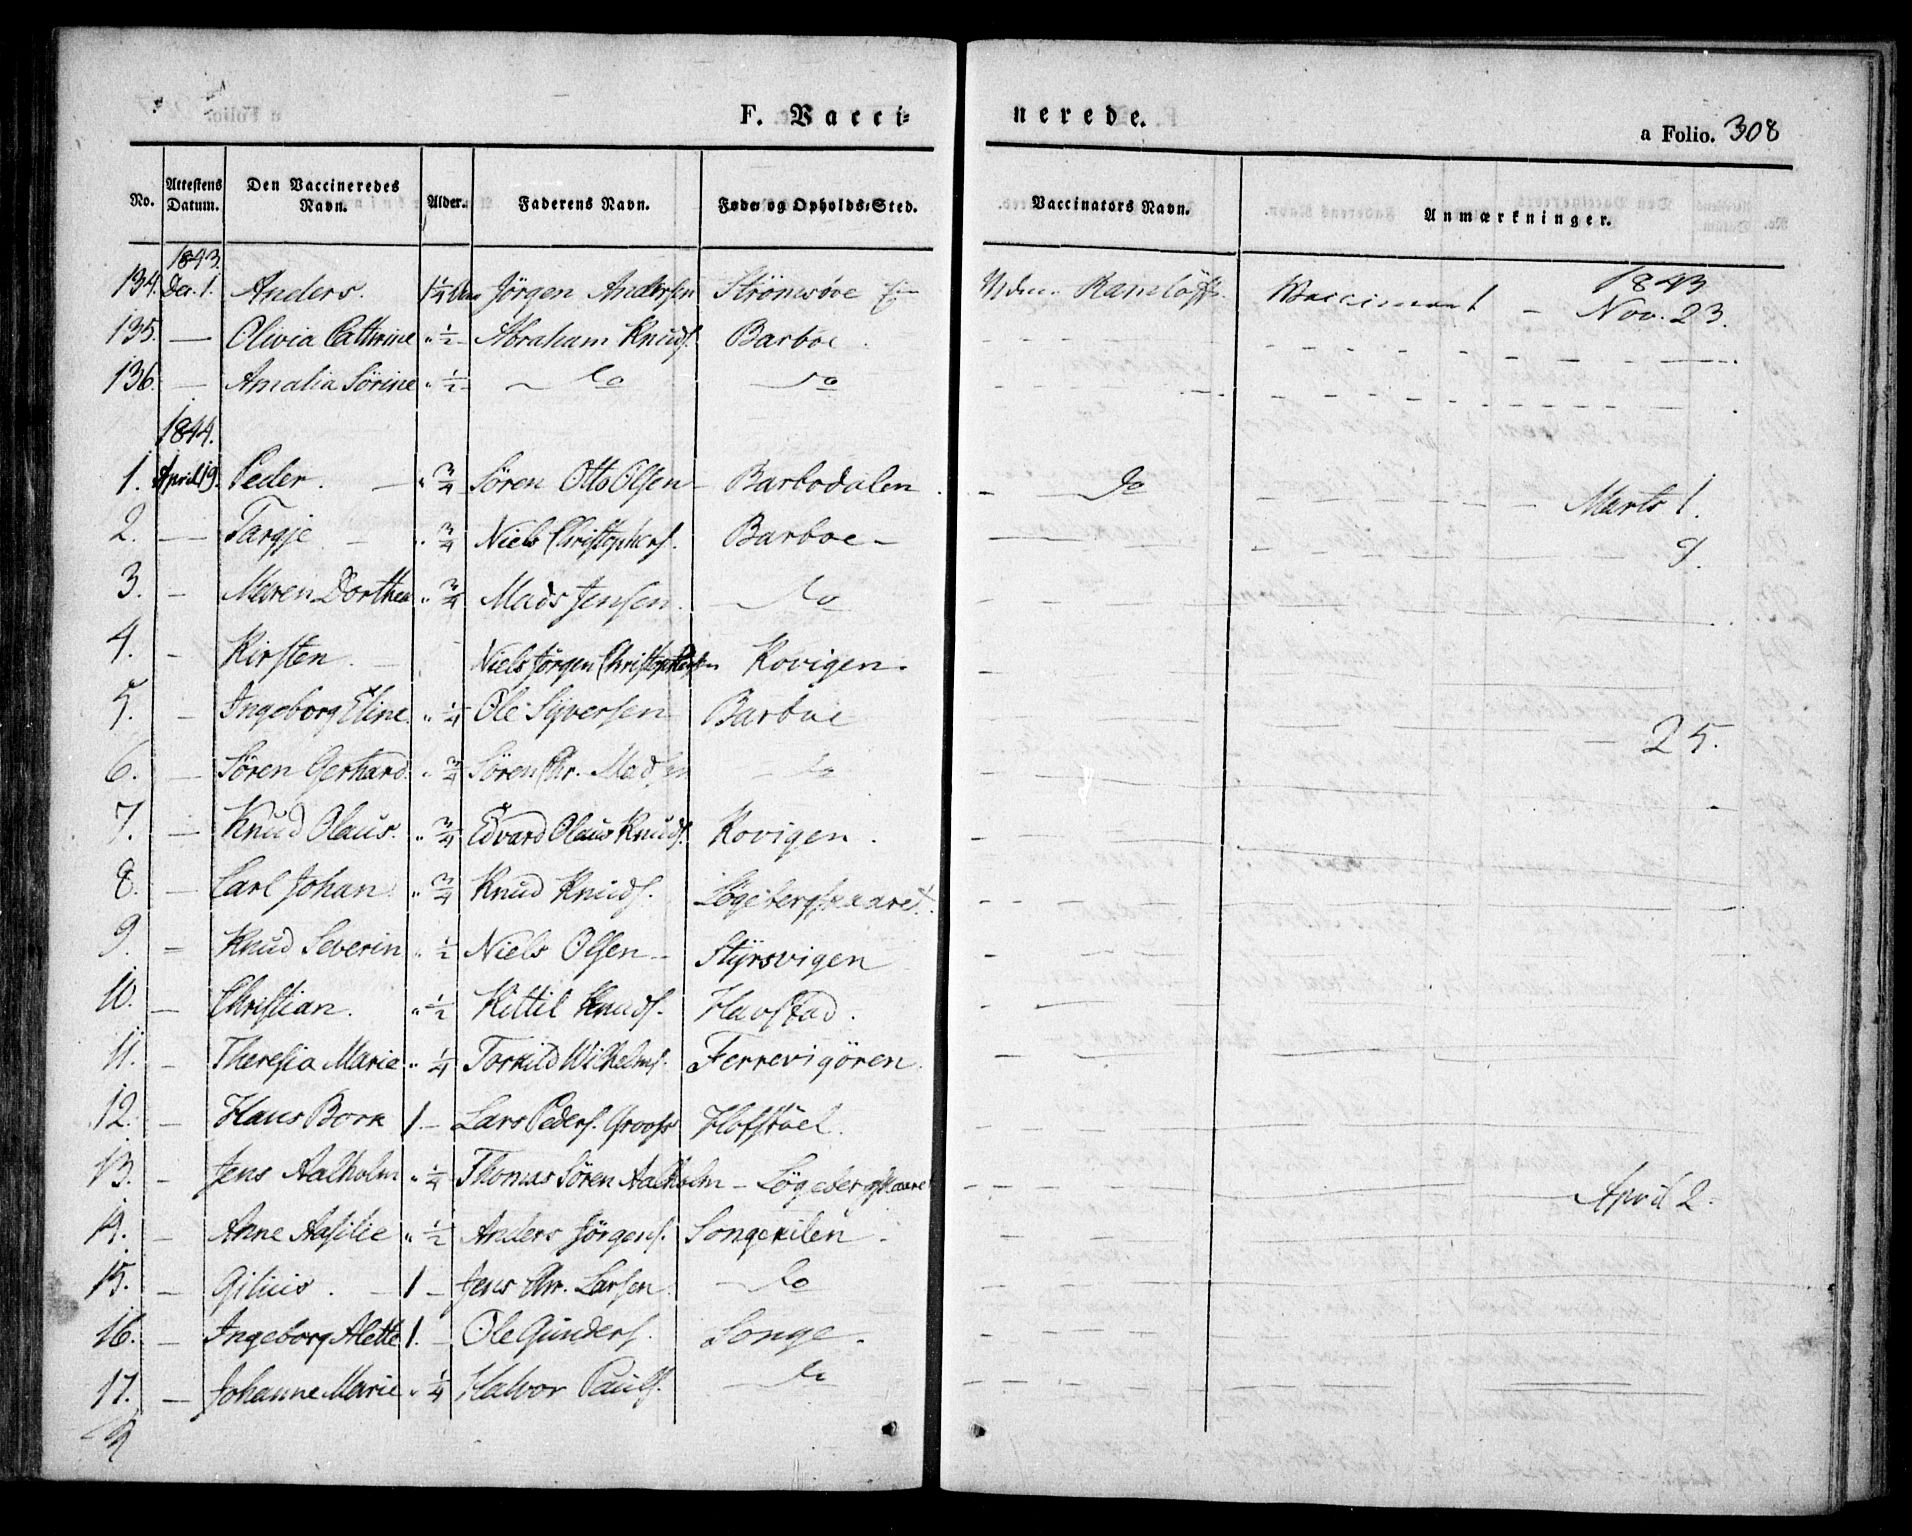 F. Vacci- nerede.
a Folio. 308
No. Attestens Datum. Den Vaccineredes Navn. Alder. Faderens Navn. Føde og Opholds-Sted. Vaccinators Navn. Anmærkninger.
1843. 1843
134. Dec. 1. Anders. 1¼ Jörgen Andersen Nov. 23.
135. — Olivia Cathrine " ½ Abraham Knuds. Barboe.
136. — Amalia Sörine " ½ — do do
1844.
1. April 19. Peder. — " ¾ Sören Otto Olsen Barbodalen. — do — Marts 1.
2. — Targje — " ¾ Niels Christophers. Barboe — 9.
3. — Maren Dorthea " ¾ Mads Jensen. do
4. — Kirsten. — Niels Jörgen Christophersen Kovigen.
5. — Ingeborg Eline. " ¼ Ole Syversen Barboe — 25.
6. — Sören Gerhard. " ¾ Sören Chr. Madsen do
7. — Knud Olaus. " ¾ Edvard Olaus Knuds. Kovigen.
8. — Carl Johan " ¾ Knud Knuds. Lögebergskaaret.
9. — Knud Severin " ½ Niels Olsen — Styrsvigen
10. — Christian. " ½ Kittil Knuds. Havstad.
11. — Theresia Marie " ¼ Torkild Wilhelms. Ferrevigören.
12. — Hans Bork 1 — Lars Peders. Hofstöel.
13. — Jens Aalholm " ¼ Thomas Sören Aalholm — Lögebergskaaret April 2.
14. — Anne Aasilie " ½ Anders Jörgens. Songekilen.
15. — Gilius. — 1 — Jens Chr. Larsen. do
16. — Ingeborg Alette 1. — Ole Gunders. Songe.
17. — Johanne Marie " ¼ Halvor Pauls. do